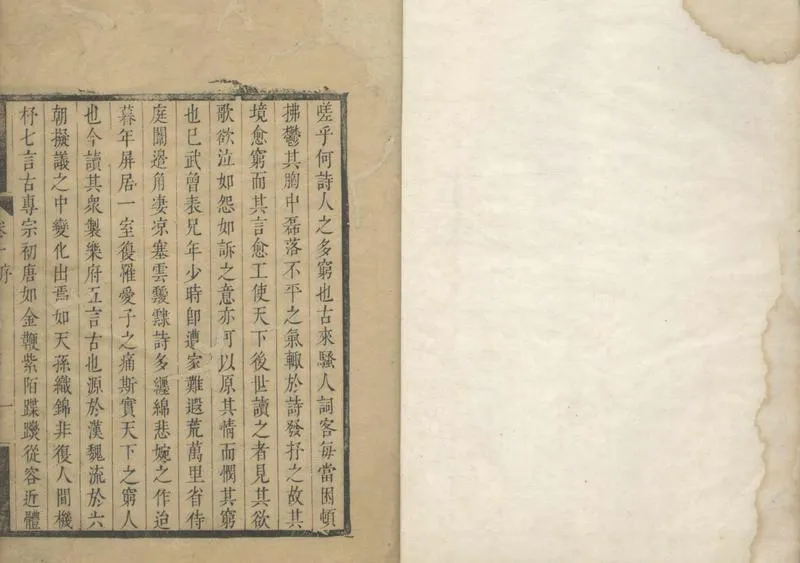 嗟乎何詩人之多窮也古來騷人詞客每當困頓
拂鬱其胸中磊落不平之氣輙於詩發抒之故其
境愈窮而其言愈工使天下後世讀之者見其欲
歌欲泣如怨如訴之意亦可以原其情而憫其窮
也已武曾表兄年少時卽遭家難遐荒萬里省侍
庭闈邊角凄凉塞雲靉靆詩多纏綿悲婉之作迨
暮年屏居一室復罹愛子之痛斯實天下之窮人
也今讀其衆製樂府五言古也源於漢魏流於六
朝擬議之中變化出焉如天孫織錦非復人間機
杼七言古專宗初唐如金鞭紫陌蹀躞從容近體
序
一